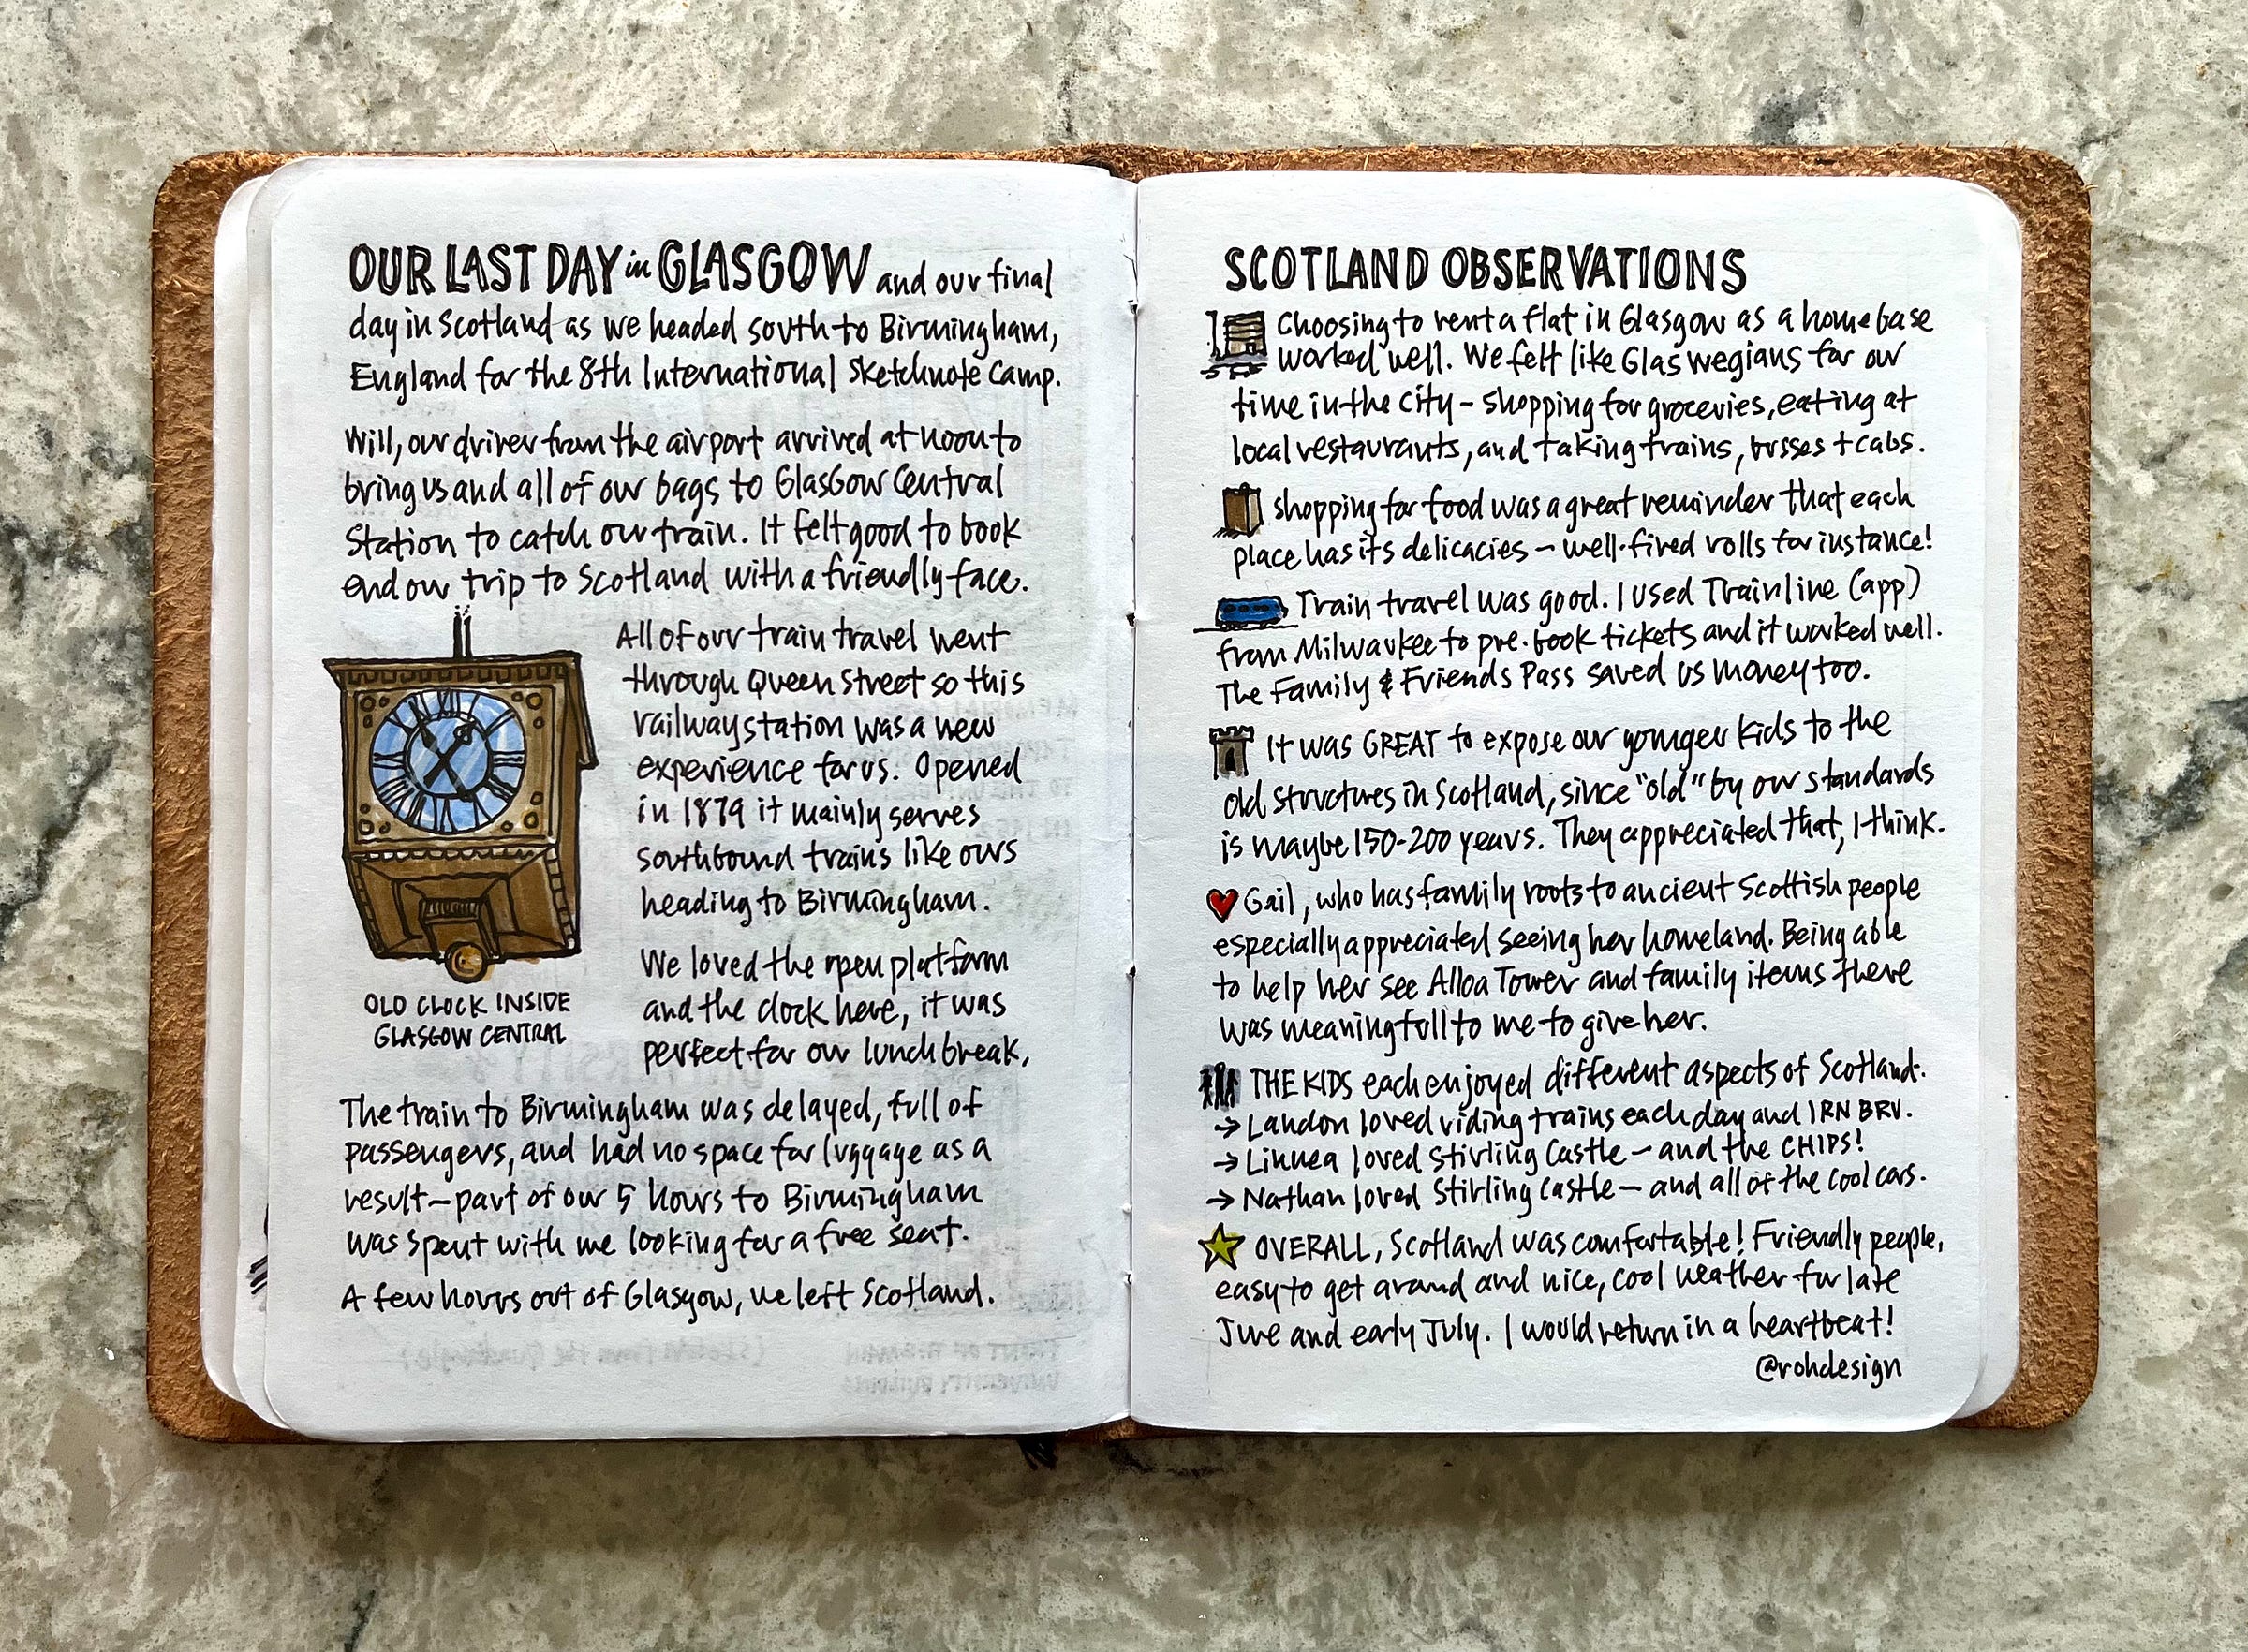 OUR LAST DAY in GLASGOW and our final
day in Scotland as we headed south to Birmingham,
England for the 8th International Sketchnote Camp.
Will, our driver from the airport arrived at noon to
bring us and all of our bags to Glasgow Central
Station to catch our train. It felt good to book
end our trip to Scotland with a friendly face.
All of our train travel went
through Queen Street so this
railway station was a new
experience for us. Opened
in 1879 it mainly serves
southbound trains like ours
heading to Birmingham.
We loved the open platform
and the clock here, it was
perfect for our lunch break,
OLD CLOCK INSIDE
GLASGOW CENTRAL
The train to Birmingham was delayed, full of
passengers, and had no space for luggage as a
result—part of our 5 hours to Birmingham
was spent with me looking for a free seat.
A few hours out of Glasgow, we left Scotland.
SCOTLAND OBSERVATIONS
Choosing to rent a flat in Glasgow as a home base
worked well. We felt like Glaswegians for our
time in the city – shopping for groceries, eating at
local restaurants, and taking trains, busses + cabs.
Shopping for food was a great reminder that each
place has its delicacies – well-fired rolls for instance!
Train travel was good. I used Trainline (app)
from Milwaukee to pre-book tickets and it worked well.
The Family & Friends Pass saved us money too.
It was GREAT to expose our younger kids to the
old structures in Scotland, since "old" by our standards
is maybe 150-200 years. They appreciated that, I think.
Gail, who has family roots to ancient Scottish people
especially appreciated seeing her homeland. Being able
to help her see Alloa Tower and family items there
was meaningfull to me to give her.
THE KIDS each enjoyed different aspects of Scotland.
→ Landon loved riding trains each day and IRN BRU.
→ Linnea loved Stirling Castle – and the CHIPS!
→ Nathan loved Stirling Castle – and all of the cool cars.
OVERALL, Scotland was comfortable! Friendly people,
easy to get around and nice, cool weather for late
June and early July. I would return in a heartbeat!
@rohdesign